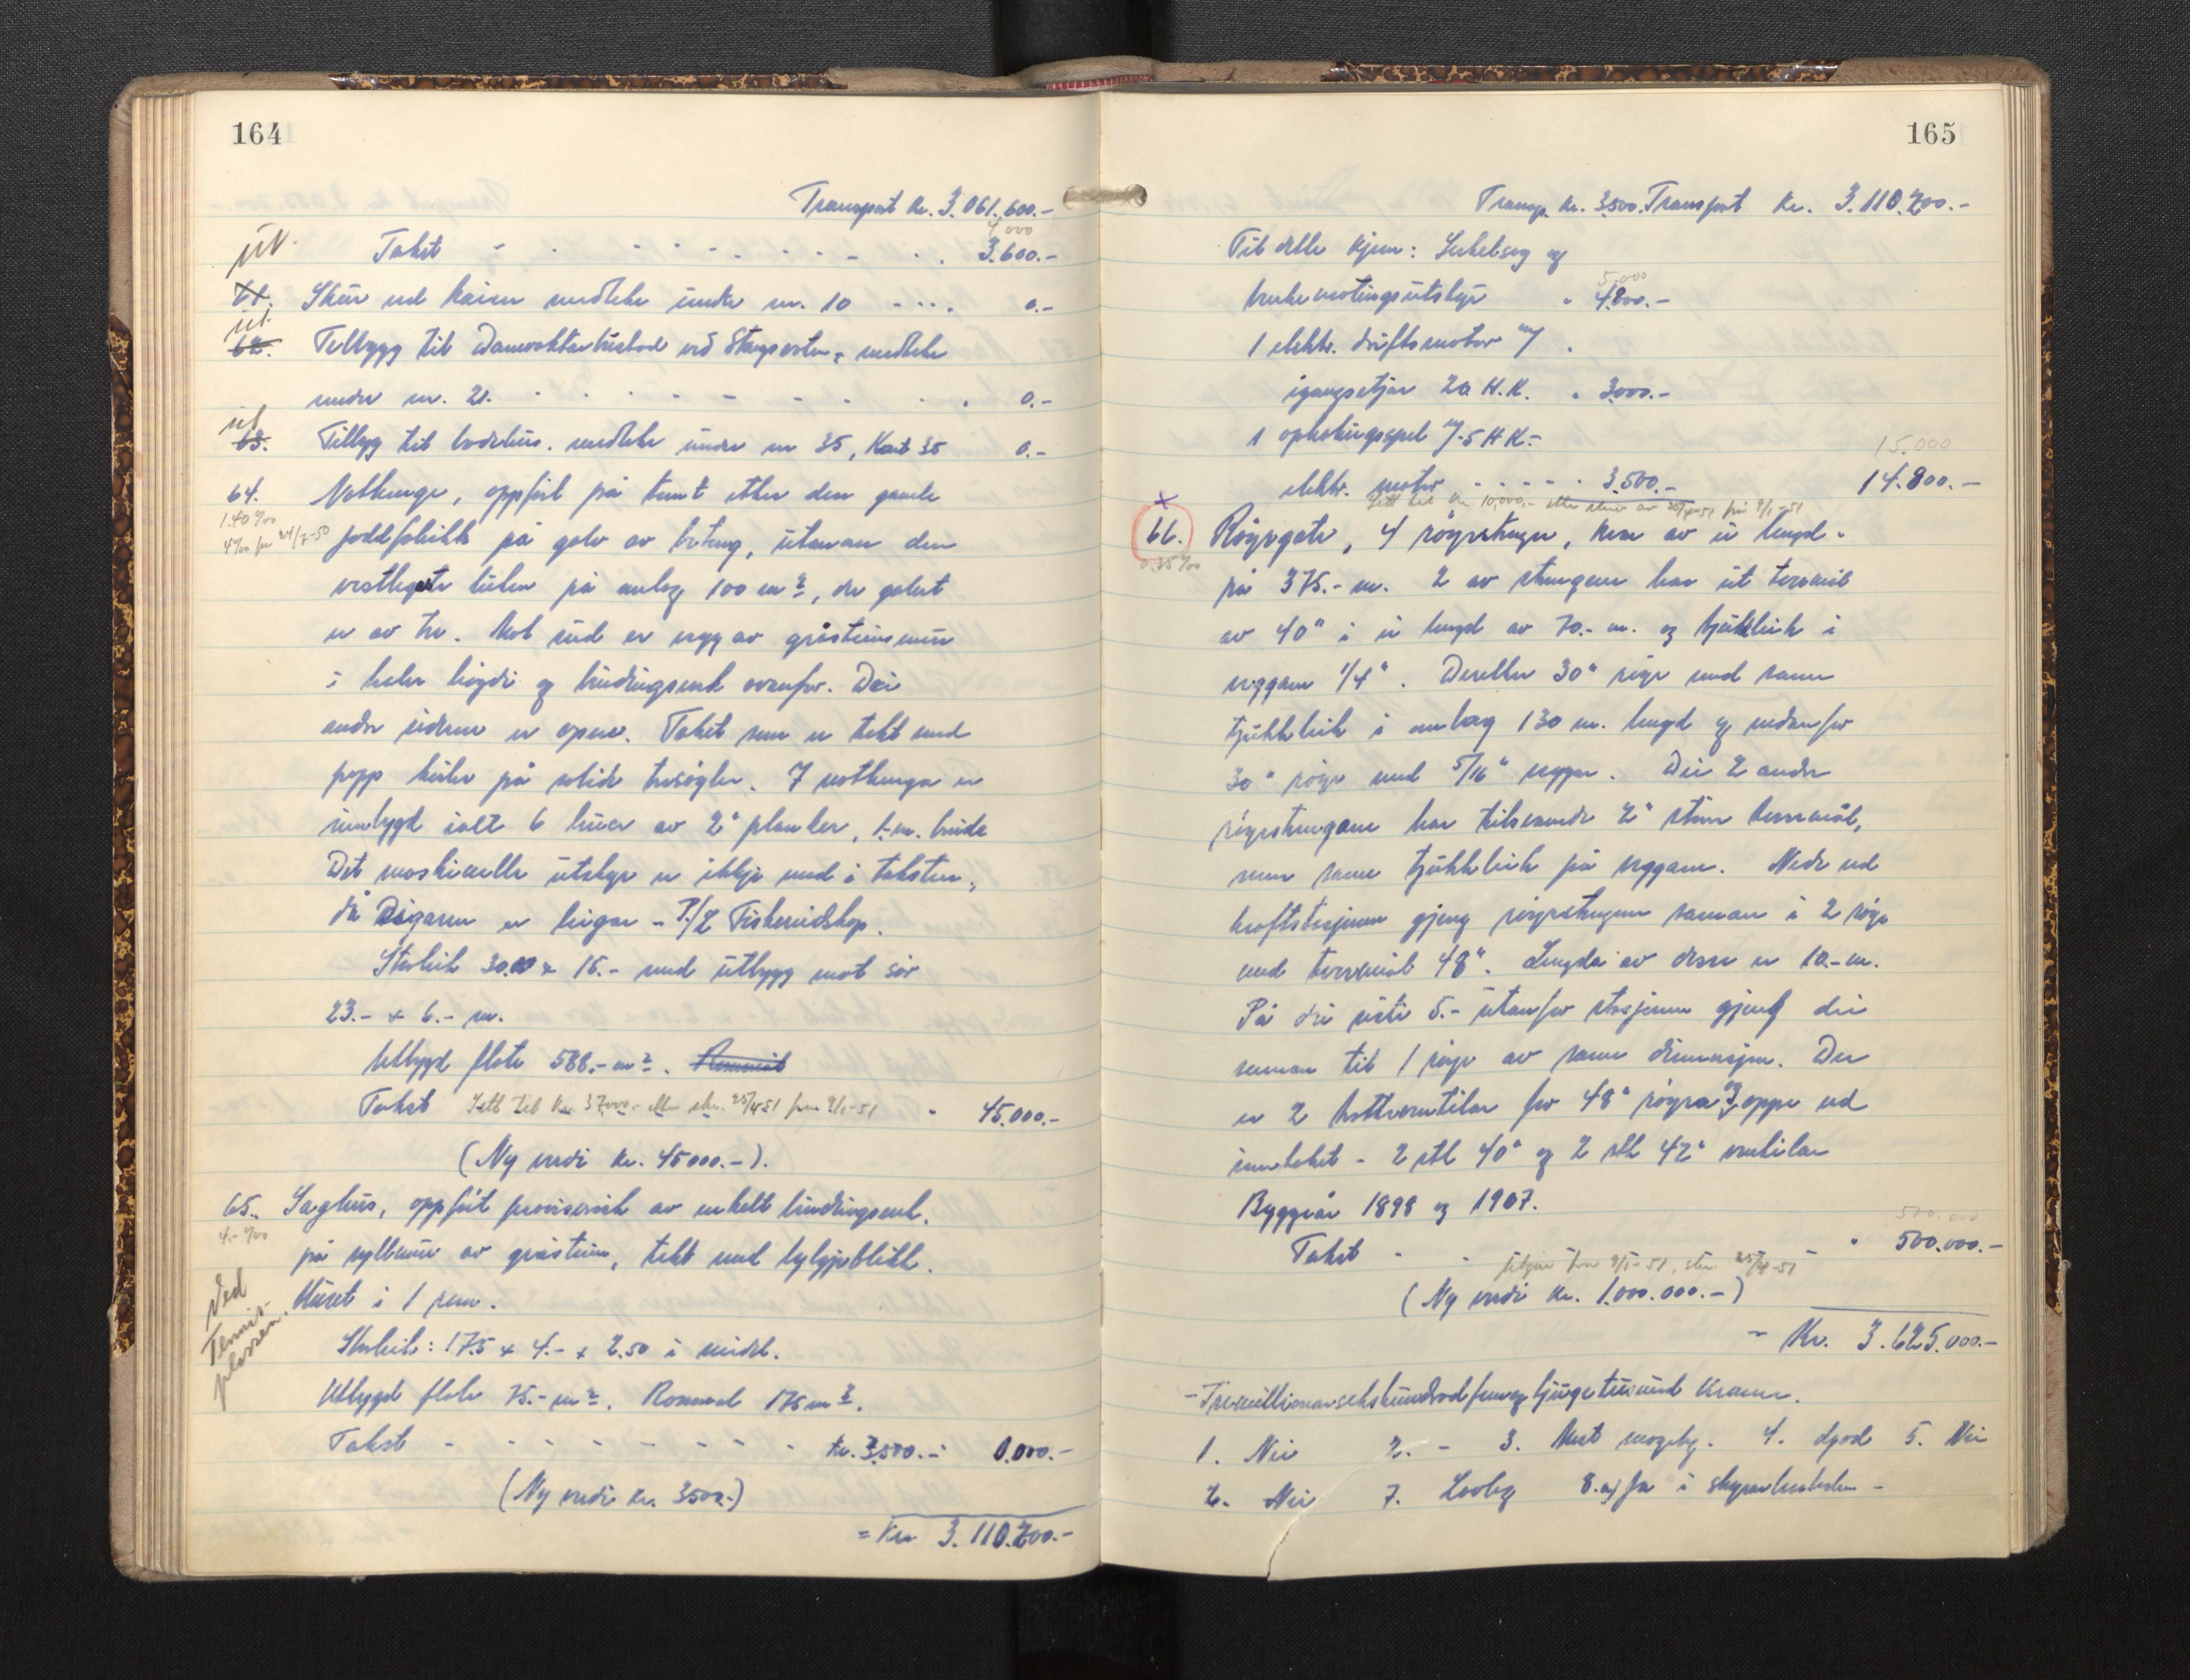 164
Transport kr. 3.061.600.-
4000
út. Takst - - - - - - - - - 3.600.-
61. Skur ved kaien medteke under nr. 10 - - - - 0.-
út.
62. Tilbygg til Damvaktarbustad ved Stegsvatn, medteke
under nr. 21. - - - - - - - 0.-
út
63. Tilbygg til badehus. medteke under nr 35, Kart 35 0.-
64. Nothenge, oppført på tomt etter den gamle
1.40 ‰
4 ‰ fra 24/7-50 fabrikk på golv av betong, utanan den
vestlegste luten på omlag 100 m², der golvet
er av tre. Mot sud er vegg av gråsteinsmur
i heile høgdi og bindingsverk ovanfor. Dei
andre sidene er opne. Taket som er tekt med
papp kviler på solide tresøyler. I nothenga er
innbygd ialt 6 bruer av 2" planker, 1.-m. breide
Det maskinelle utstyr er ikkje med i taksten,
då eigaren er leigar - P/L Fiskereidskap.
Storleik 30.00 x 15.- med utbygg mot sør
23.- x 6.- m.
Utbygd flate 588.- m². Rommål
Takst Sett til kr. 37000.- etter skr. 25/4-51 fra 9/1-51 " 45.000.-
(Ny verdi kr. 45000.-).
65. Saghus, oppført provisorisk av enkelt bindingsverk.
4.- ‰
på syllmur av gråstein, tekt med bylgjeblikk.
Ved Tennisplassen. Huset i 1 rom.
Storleik: 17.5 x 4.- x 2.50 i midt.
Utbygd flate 75.- m². Rommål 175 m³.
Takst - - - - - - - - kr. 3.500.- 0.000.-
(Ny verdi kr. 3500.-)
= Kr 3.110.200.-
165
Transp. kr. 3.500. Transport kr. 3.110.200.-
Til dette kjem: Sirkelsag og
5.000
" 4.800.-
1 elektr. driftsmotor m/
igangsetjar 20 H.K. " 3.000.-
1 opphalingsspel m/ 5 H K.-
15.000
elektr. motor - - - - - 3.500.- 14.800.-
Sett til kr 10,000.- etter skriv av 25/4-51 frå 9/1-51
x
66. Røyrgate, 4 røyrstrenger, kvar av ei lengd
0.35 ‰
på 375.- m. 2 av strengene har eit tverrmål
av 40" i ei lengd av 70.- m. og tjukkleik i
veggane 1/4". Deretter 30" røyr med same
tjukkleik i omlag 130 m. lengd og nedanfor
30" røyr med 5/16" veggar. Dei 2 andre
røyrstrengane har tilsvarande 2" større tverrmål,
men same tjukkleik på veggane. Nede ved
kraftstasjonen gjeng røyrstrengene saman i 2 røyr
med tverrmål 48". Lengda av desse er 10.- m.
På dei siste 5.- utanfor stasjonen gjeng dei
saman til 1 røyr av same dimensjon. Der
er 2 hovudventilar for 48" røyra og oppe ved
inntaket - 2 stk 40" og 2 stk 42" ventilar
Byggeår 1898 og 1907.
500.000
Takst - - " 500.000.-
Utgår fra 9/1-51, skr. 25/4-51
(Ny verdi kr. 1.000.000.-)
- Kr. 3.625.000.-
- Tremillionarsekshundradfemogtjugetusund kroner.
1. Nei 2. - 3. 4. 5. Nei
6. Nei 7. Lovleg 8. a) Ja i